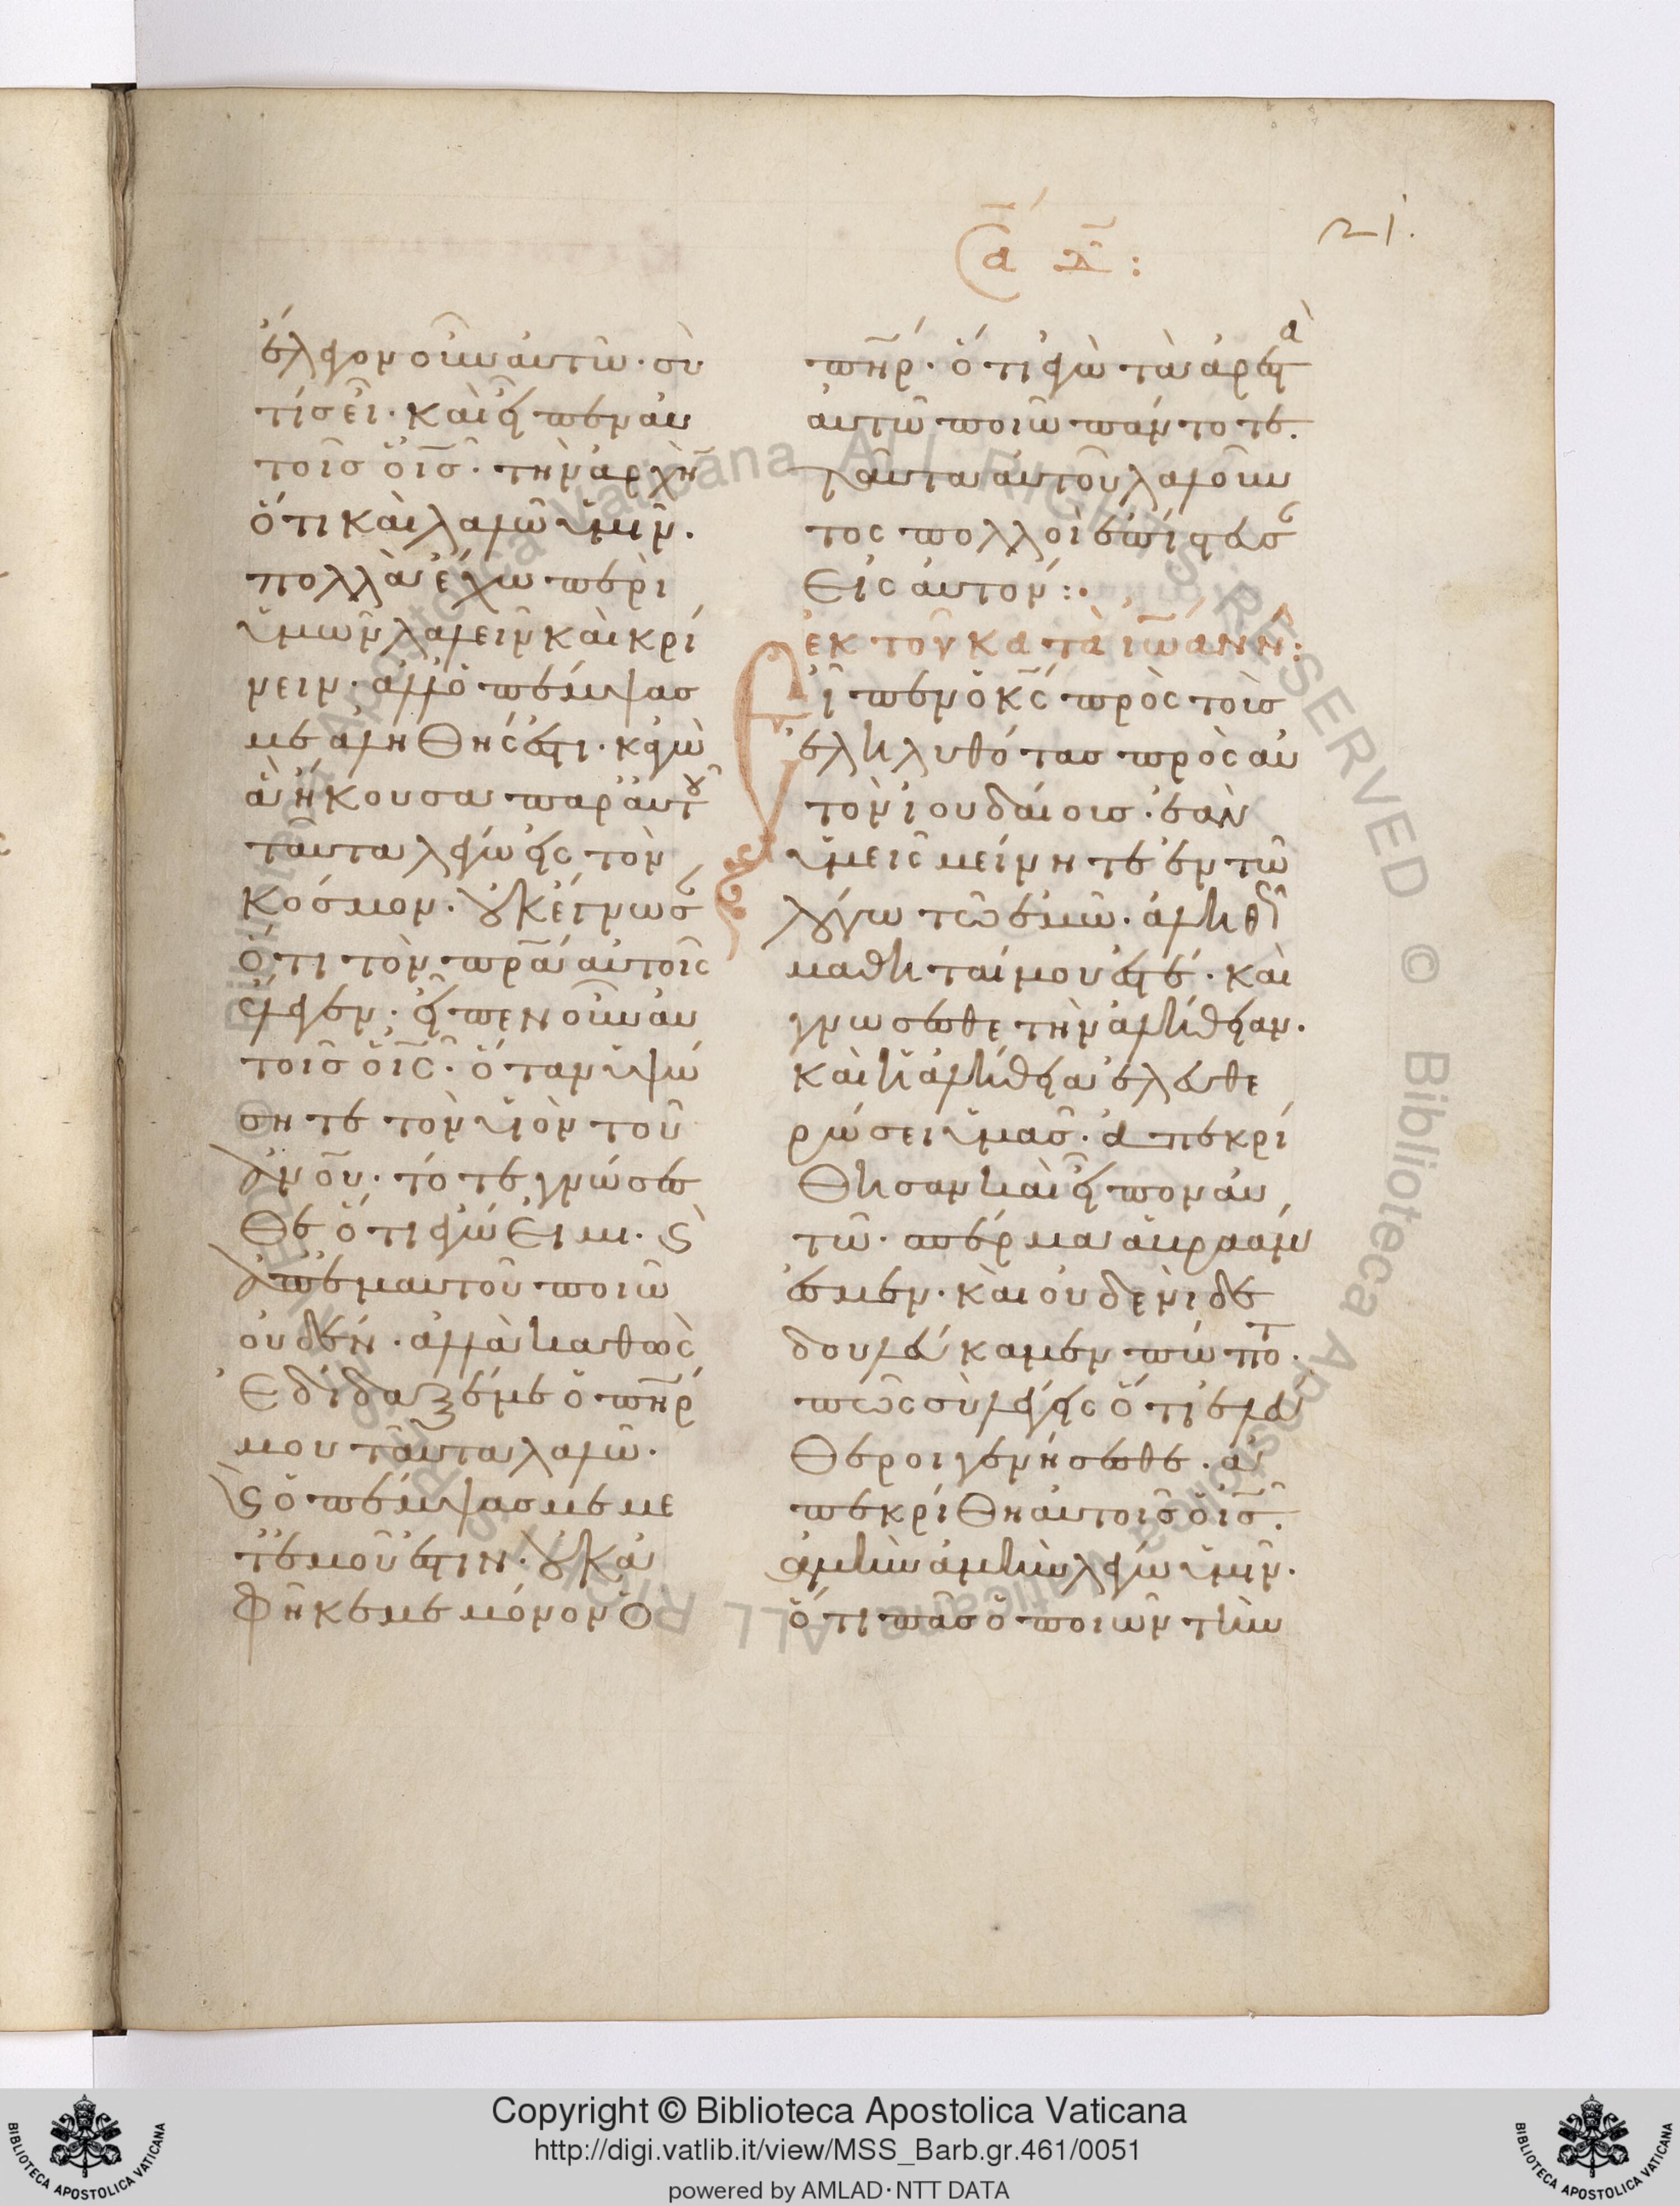 21.
ἔλεγον οὖν αὐτῶ· σὺ
τίς εἶ· καὶ εἶπεν αὐ
τοῖς ὁ ις· τὴν ἀρχὴν
ὅτι καὶ λαλῶ ὑμῖν·
πολλὰ ἔχω περὶ
ὑμῶν λαλεῖν καὶ κρί
νειν· ἀλλ' ὁ πέμψας
με ἀληθής ἐστι· κἀγὼ
ἃ ἤκουσα παρ' αὐτοῦ
ταῦτα λέγω εἰς τὸν
κόσμον· οὐκ ἔγνωσαν
ὅτι τὸν πρα αὐτοῖς
ἔλεγεν· εἶπεν οὖν αὐ
τοῖς ὁ ις· ὅταν ὑψώ
σητε τὸν υἱὸν τοῦ
ἀνου· τότε γνώσεσ
θε ὅτι ἐγώ εἰμι· καὶ
ἀπ' ἐμαυτοῦ ποιῶ
οὐδέν· ἀλλὰ καθὼς
ἐδίδαξέ με ὁ πηρ
μου ταῦτα λαλῶ·
καὶ ὁ πέμψας με με
τ' ἐμοῦ ἐστιν· οὐκ ἀ
φῆκε με μόνον ὁ
πηρ· ὅτι ἐγὼ τὰ ἀρεστὰ
αὐτῶ ποιῶ πάντοτε·
ταῦτα αὐτοῦ λαλοῦν
τος πολλοὶ ἐπίστευσαν
εἰς αὐτόν:·
ἐκ τοῦ κατὰ ἰωάννην:
Εἶπεν ὁ κς πρὸς τοὺς
ἐληλυθότας πρὸς αὐ
τὸν ἰουδαίους· ἐὰν
ὑμεῖς μείνητε ἐν τῶ
λόγω τῶ ἐμῶ· ἀληθῶς
μαθηταί μου ἐστέ· καὶ
γνώσεσθε τὴν ἀλήθειαν·
καὶ ἡ ἀλήθεια ἐλευθε
ρώσει ὑμᾶς· ἀπεκρί
θησαν καὶ εἶπον αὐ
τῶ· σπέρμα ἀβραάμ
ἐσμεν· καὶ οὐδενὶ δε
δουλεύκαμεν πώποτε·
πῶς σὺ λέγεις ὅτι ἐλεύ
θεροι γενήσεσθε· ἀ
πεκρίθη αὐτοῖς ὁ ις·
ἀμὴν ἀμὴν λέγω ὑμῖν·
ὅτι πᾶς ὁ ποιῶν τὴν
Copyright © Biblioteca Apostolica Vaticana
http://digi.vatlib.it/view/MSS_Barb.gr.461/0051
powered by AMLAD·NTT DATA